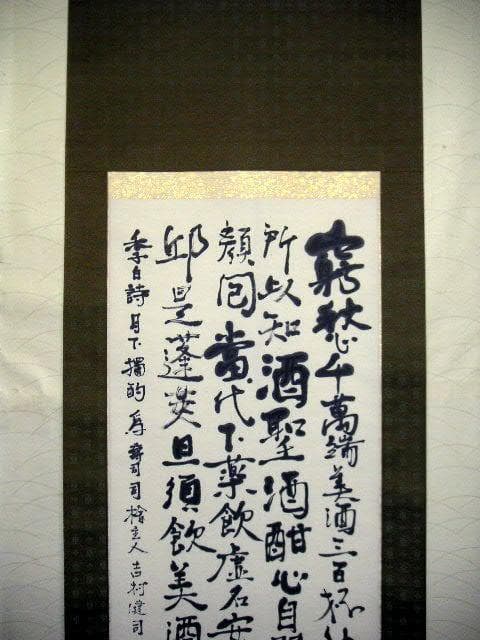 窮愁千萬端美酒三百杯
所以知酒聖酒酣心自開
顏回當代不樂飲虛名安
邱是蓬萊且須飲美酒
李白詩月下獨酌為壽司檜主人吉村健司